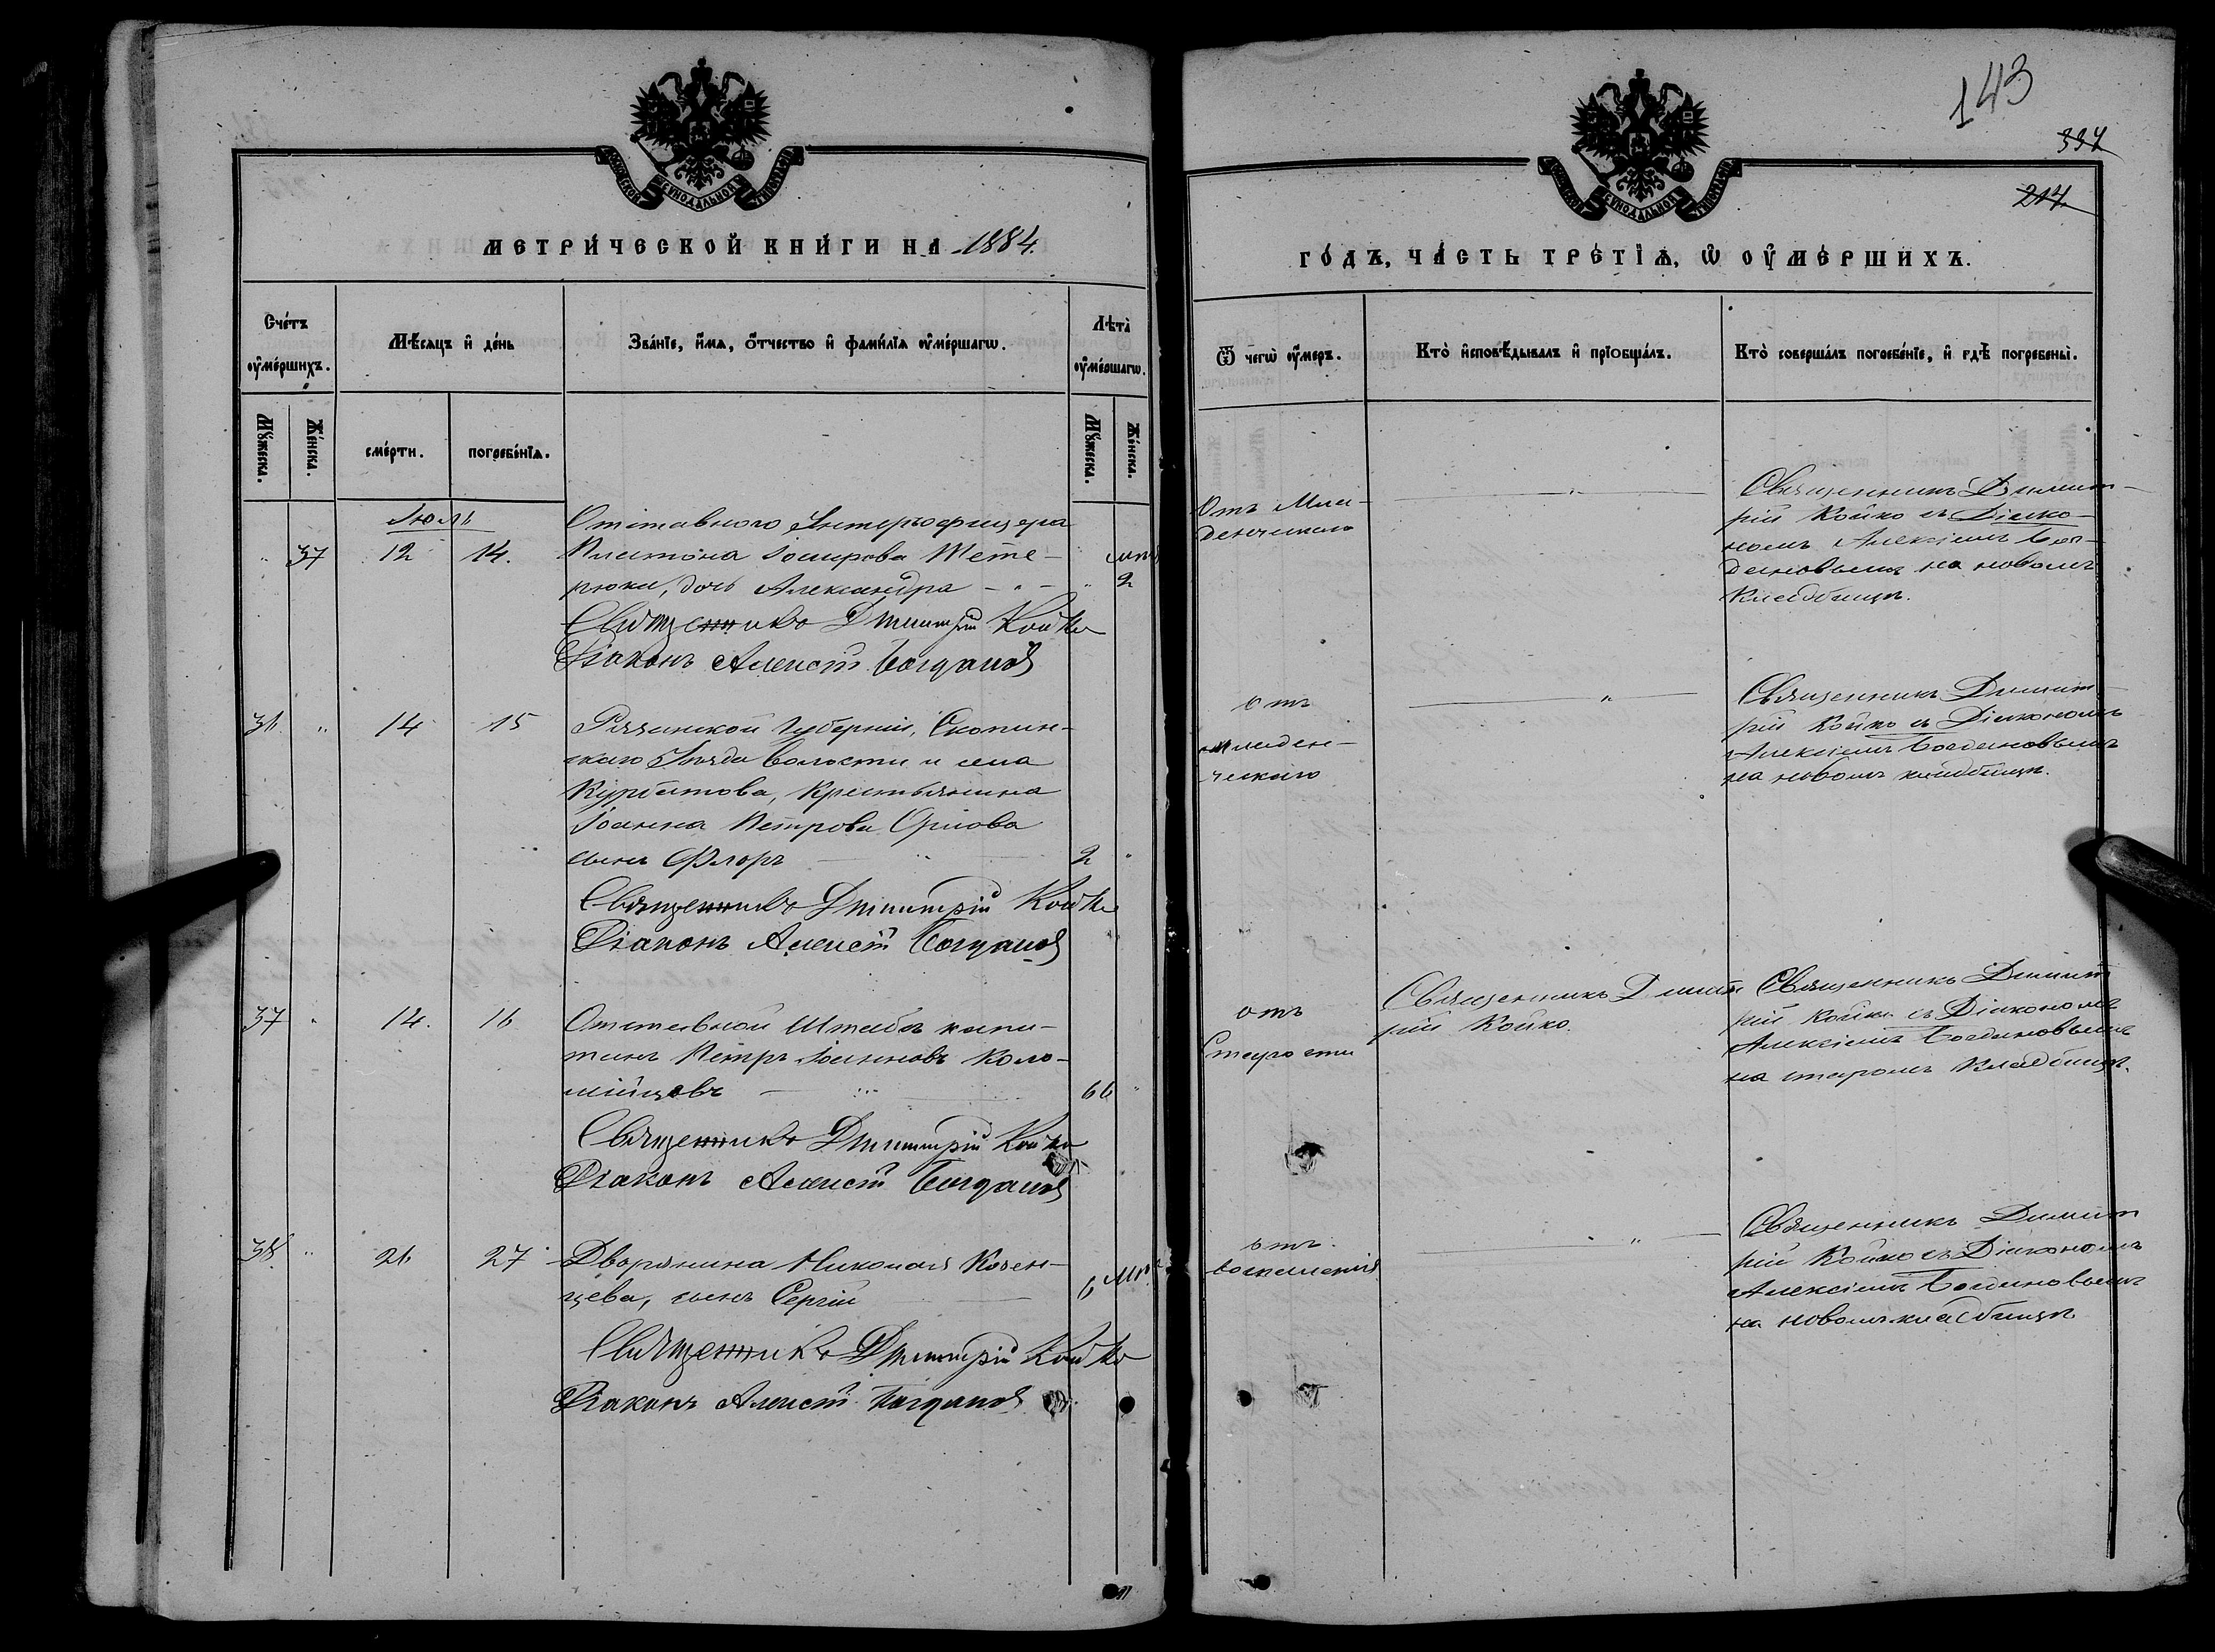 143
334
214.
МОСКОВСКОЙ СѴНОДАЛЬНОЙ ТИПОГРАФІИ
МОСКОВСКОЙ СѴНОДАЛЬНОЙ ТИПОГРАФІИ
МЕТРИ́ЧЕСКОЙ КНИ́ГИ НА 1884.
ГО́ДЪ, ЧА́СТЬ ТРЕ́ТІѦ, Ѡ҆ ОУ҆МЕ́РШИХЪ.
Сче́тъ оу҆ме́ршихъ.
Мѣ́сяцъ и҆ де́нь
Зва́нїе, и҆́мѧ, ѻ҆́тчество и҆ фами́лїѧ оу҆ме́ршагѡ.
Лѣ́та оу҆ме́ршагѡ.
Ѿ чегѡ̀ оу҆́меръ.
Кто̀ и҆сповѣ́дывалъ и҆ прїобща́лъ.
Кто̀ соверша́лъ погребе́нїе, и҆ гдѣ̀ погребены̀.
Мꙋ́жеска.
Же́нска.
сме́рти.
погребе́нїѧ.
Мꙋ́жеска.
Же́нска.
Іюль
" 37 12 14.
Отставного Унтеръ офицера
Платона Іосифова Тете-
рюка, дочь Александра - " -
" 2
Священникъ Димитрій Койко
Діаконъ Алексѣй Богдановъ
Отъ Мла-
денческаго
"
Священникъ Димит-
рій Койко съ Діако-
номъ Алексіемъ Бог-
дановымъ на новомъ
Кладбищѣ.
36. " 14 15
Рязанской Губерніи, Скопин-
скаго Уѣзда Волости и села
Курбатова, Крестьянина
Іоанна Петрова Орлова
сынъ Флоръ "
2 "
Священникъ Димитрій Койко
Діаконъ Алексѣй Богдановъ
отъ
младен-
ческаго
"
Священникъ Димит-
рій Койко съ Діакономъ
Алексіемъ Богдановымъ
на новомъ кладбищѣ.
37 " 14. 16
Отставной Штабсъ капи-
танъ Петръ Іоанновъ Коло-
мійцовъ "
66 "
Священникъ Димитрій Койко
Діаконъ Алексѣй Богдановъ
отъ
Старости
Священникъ Димит
рій Койко.
Священникъ Димит
рій Койко съ Діакономъ
Алексіемъ Богдановымъ
на старомъ Кладбищѣ.
38. " 26 27
Дворянина Николая Козен-
цева, сынъ Сергій
6 мѣс.
Священникъ Димитрій Койко
Діаконъ Алексѣй Богдановъ
отъ
воспаленія
"
Священникъ Димит
рій Койко съ Діакономъ
Алексіемъ Богдановымъ
на новомъ кладбищѣ